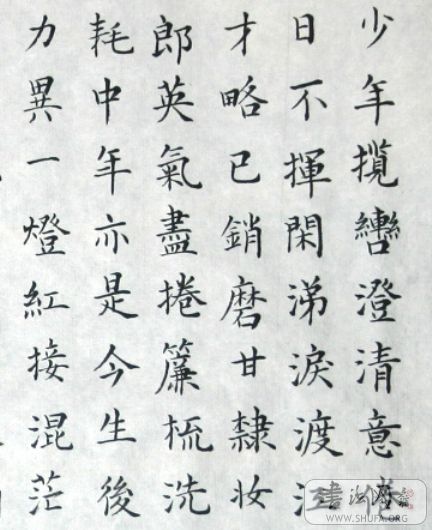 少年攬轡澄清意
日不揮閑涕淚渡
才略已銷磨甘隸妆
郎英氣盡捲簾梳洗
耗中年亦是今生後
力異一燈紅接混茫
WWW.SHUFA.ORG